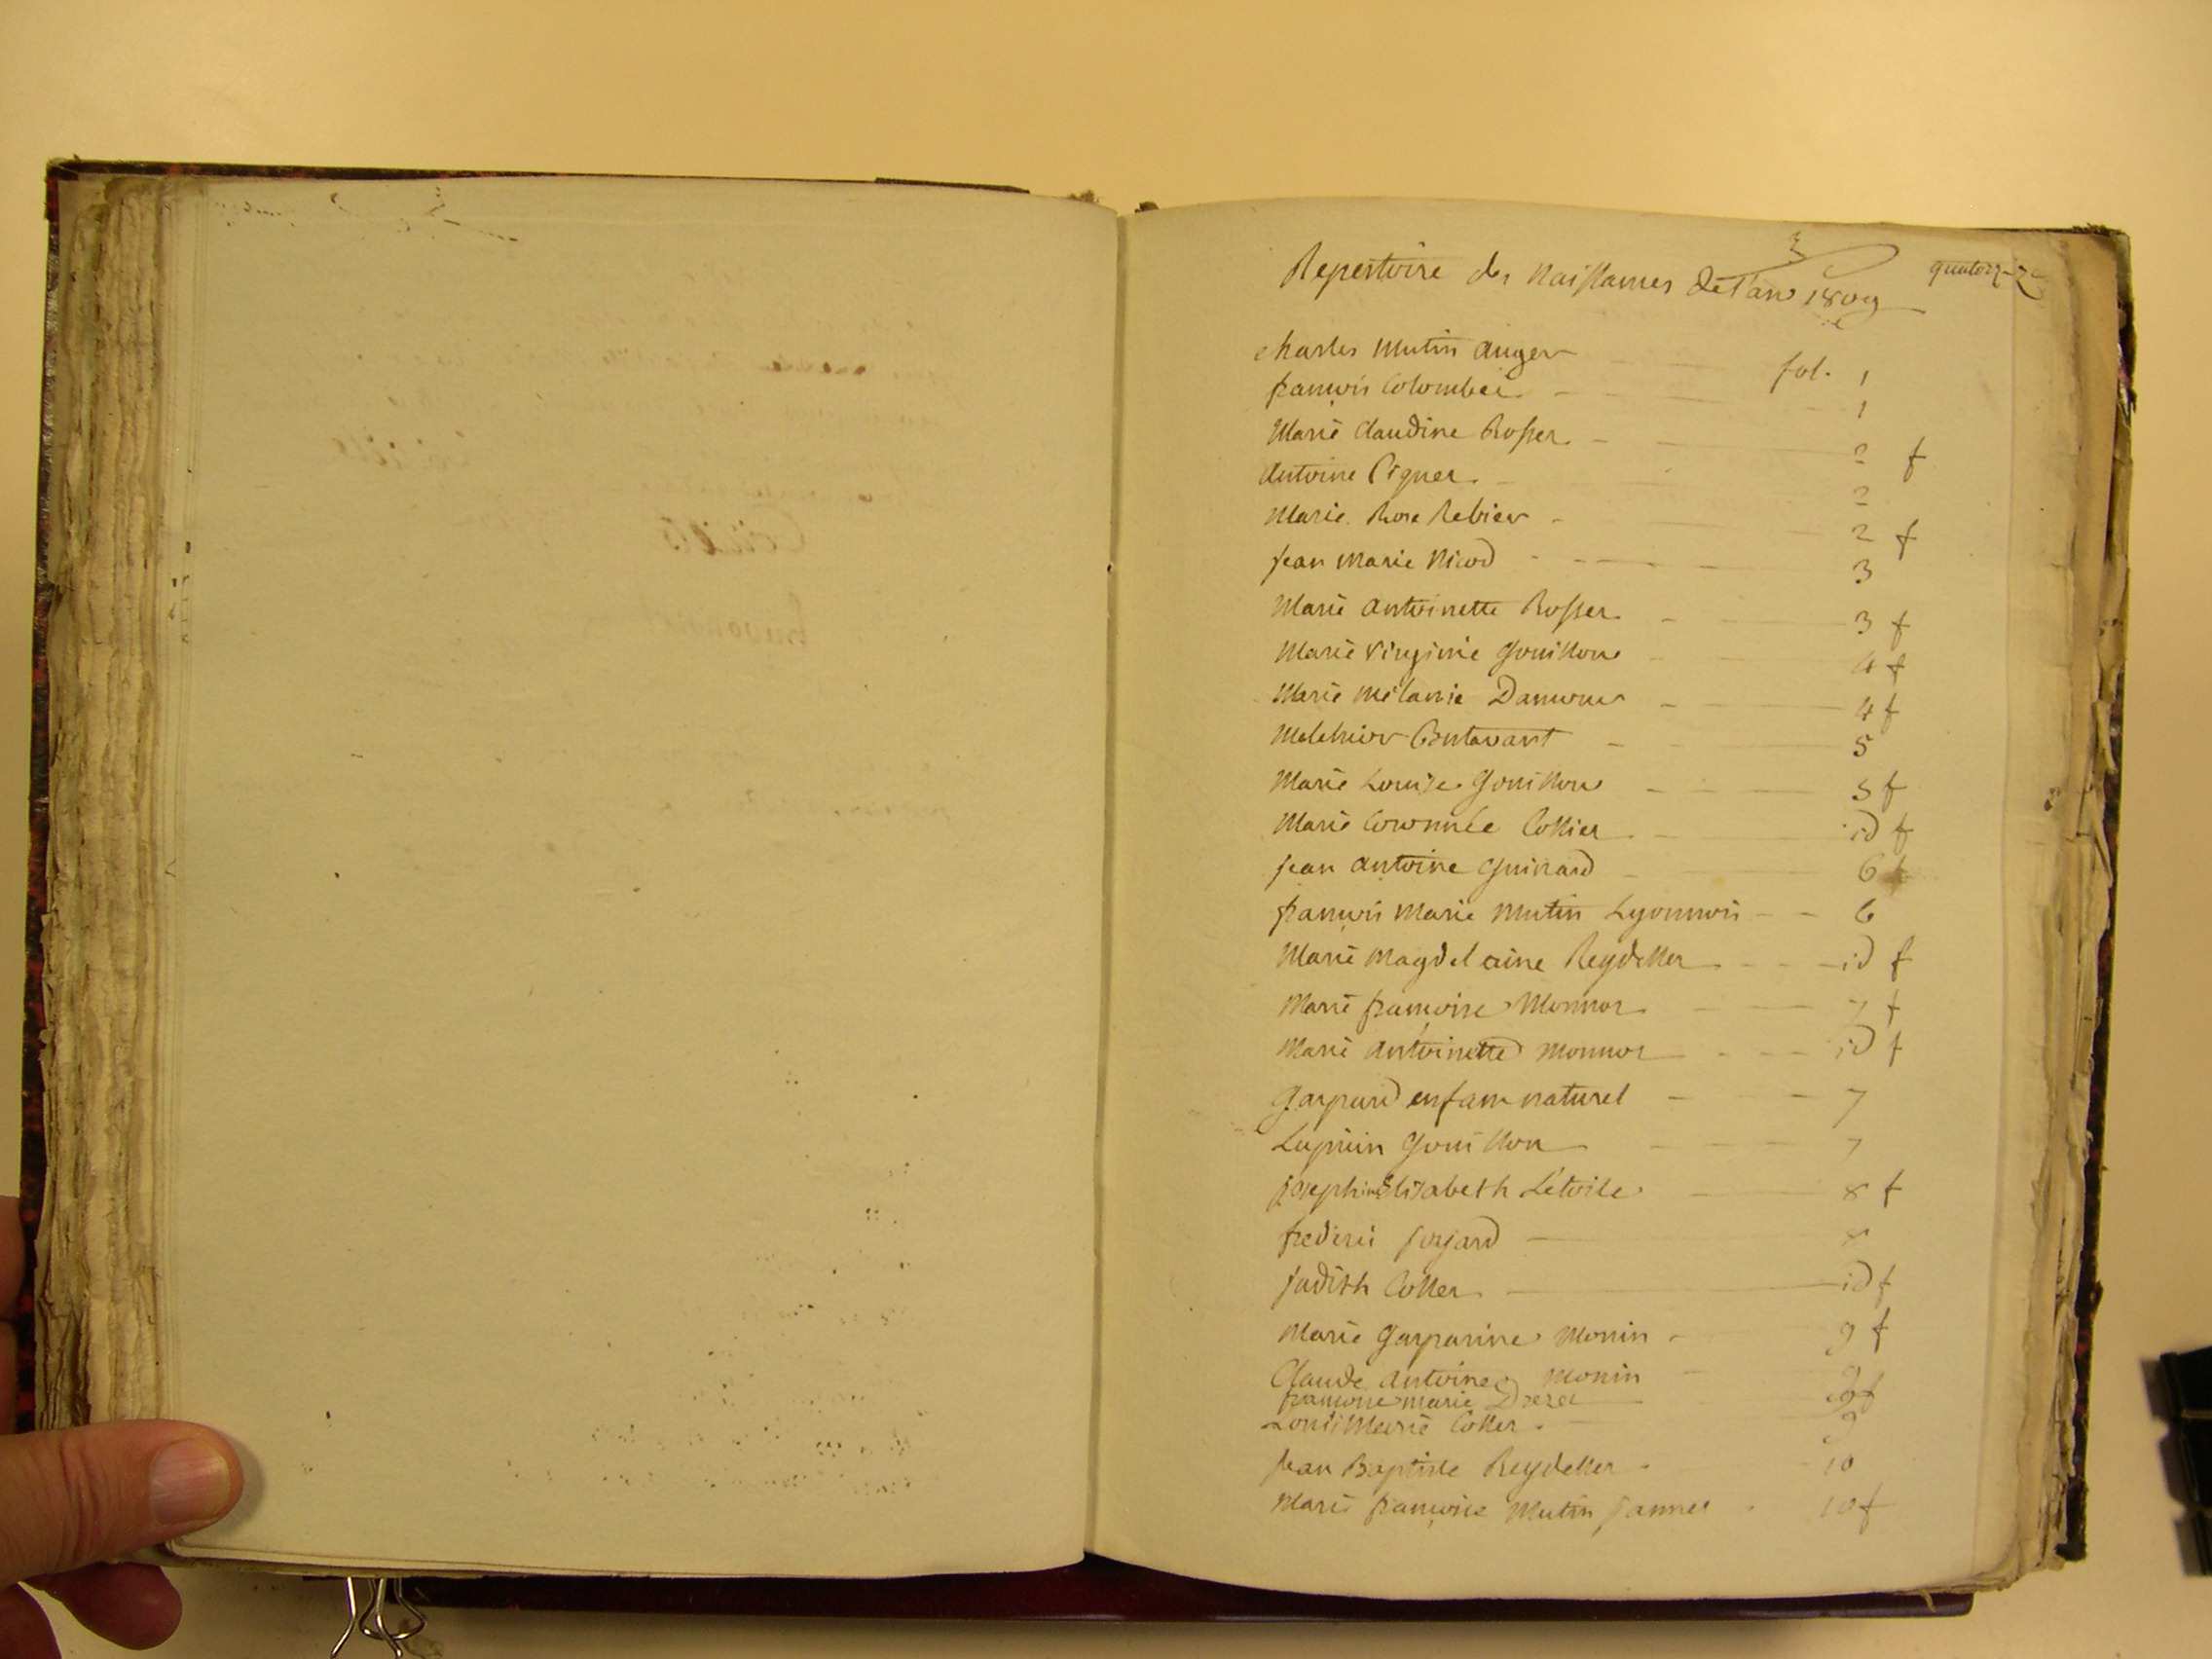 quatorze
Repertoire des Naissances de l'an 1809
Charles Mutin Auger fol. 1
francois Colombet 1
Marie Claudine Rosset 2 f
Antoine Piquet 2
Marie Rose Rebier 2 f
Jean Marie Nicod 3
Marie Antoinette Rosset 3 f
Marie Virginie Gouillon 4 f
Marie Mélanie Dancour 4 f
Melchior Boutavant 5
Marie Louise Gouillon 5 f
Marie Couronnée Collier id f
Jean Antoine Guinard 6
francois Marie Mutin Lyonnois 6
Marie Magdelaine Reydellet id f
Marie francoise Monnot 7 f
Marie Antoinette Monnot id f
Gaspard enfant naturel 7
Lupicin Gouillon 7
Josephine Elisabeth Létoile 8 f
frederic Joyard 8
Judith Collet id f
Marie Gasparine Monin 9 f
Claude Antoine Monin 9
francoise marie 9 f
Louis Marie Collet 9
Jean Baptiste Reydellet 10
Marie francoise Mutin Jannet 10 f